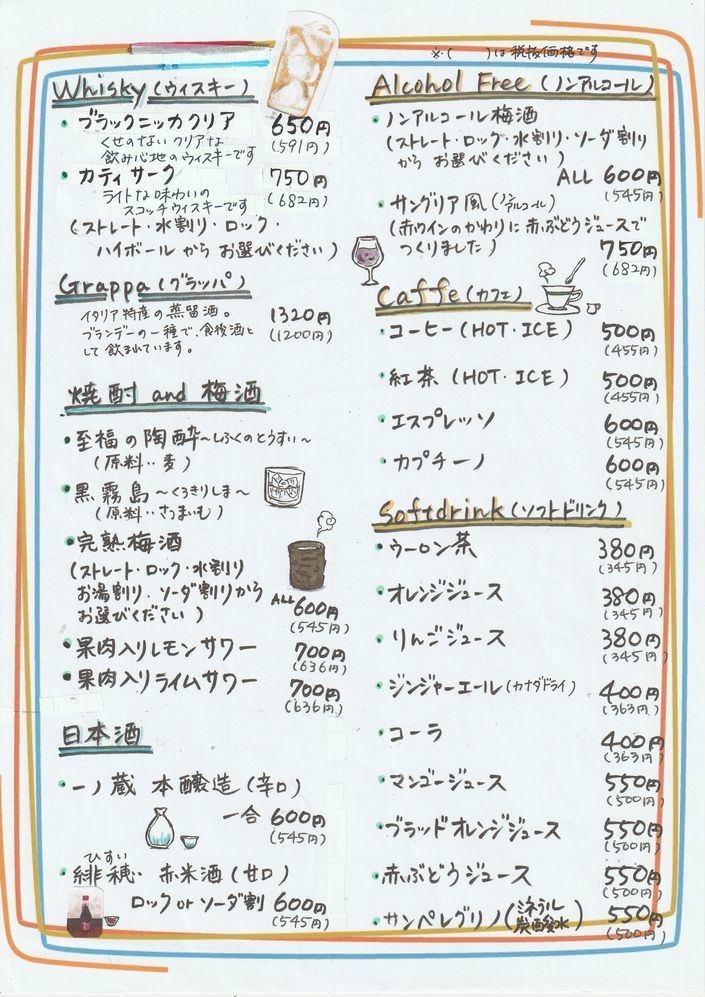 ※( )は税抜価格です
Whisky(ウィスキー)
・ブラックニッカクリア 650円
くせのない クリアな (591円)
飲み心地のウィスキーです
・カティサーク 750円
ライトな味わいの (682円)
スコッチウィスキーです
(ストレート・水割り・ロック・
ハイボール から お選びください)
Grappa(グラッパ)
イタリア特産の蒸留酒。 1320円
ブランデーの一種で、食後酒と (1200円)
して飲まれています。
焼酎 and 梅酒
・至福の陶酔〜しふくのとうすい〜
(原料‥麦)
・黒霧島〜くろきりしま〜
(原料‥さつまいも)
・完熟梅酒
(ストレート・ロック・水割り
お湯割り・ソーダ割りから
お選びください) ALL 600円
(545円)
・果肉入りレモンサワー 700円
(636円)
・果肉入りライムサワー 700円
(636円)
日本酒
・一ノ蔵 本醸造(辛口)
一合 600円
(545円)
ひすい
・緋穂 赤米酒(甘口)
ロック or ソーダ割 600円
(545円)
Alcohol Free(ノンアルコール)
・ノンアルコール梅酒
(ストレート・ロック・水割り・ソーダ割り
から お選びください)
ALL 600円
(545円)
・サングリア風(ノンアルコール)
(赤ワインのかわりに赤ぶどうジュースで
つくりました) 750円
(682円)
Caffe(カフェ)
・コーヒー(HOT・ICE) 500円
(455円)
・紅茶(HOT・ICE) 500円
(455円)
・エスプレッソ 600円
(545円)
・カプチーノ 600円
(545円)
Softdrink(ソフトドリンク)
・ウーロン茶 380円
(345円)
・オレンジジュース 380円
(345円)
・りんごジュース 380円
(345円)
・ジンジャーエール(カナダドライ) 400円
(363円)
・コーラ 400円
(363円)
・マンゴージュース 550円
(500円)
・ブラッドオレンジジュース 550円
(500円)
・赤ぶどうジュース 550円
(500円)
・サンペレグリノ(ミネラル炭酸水) 550円
(500円)